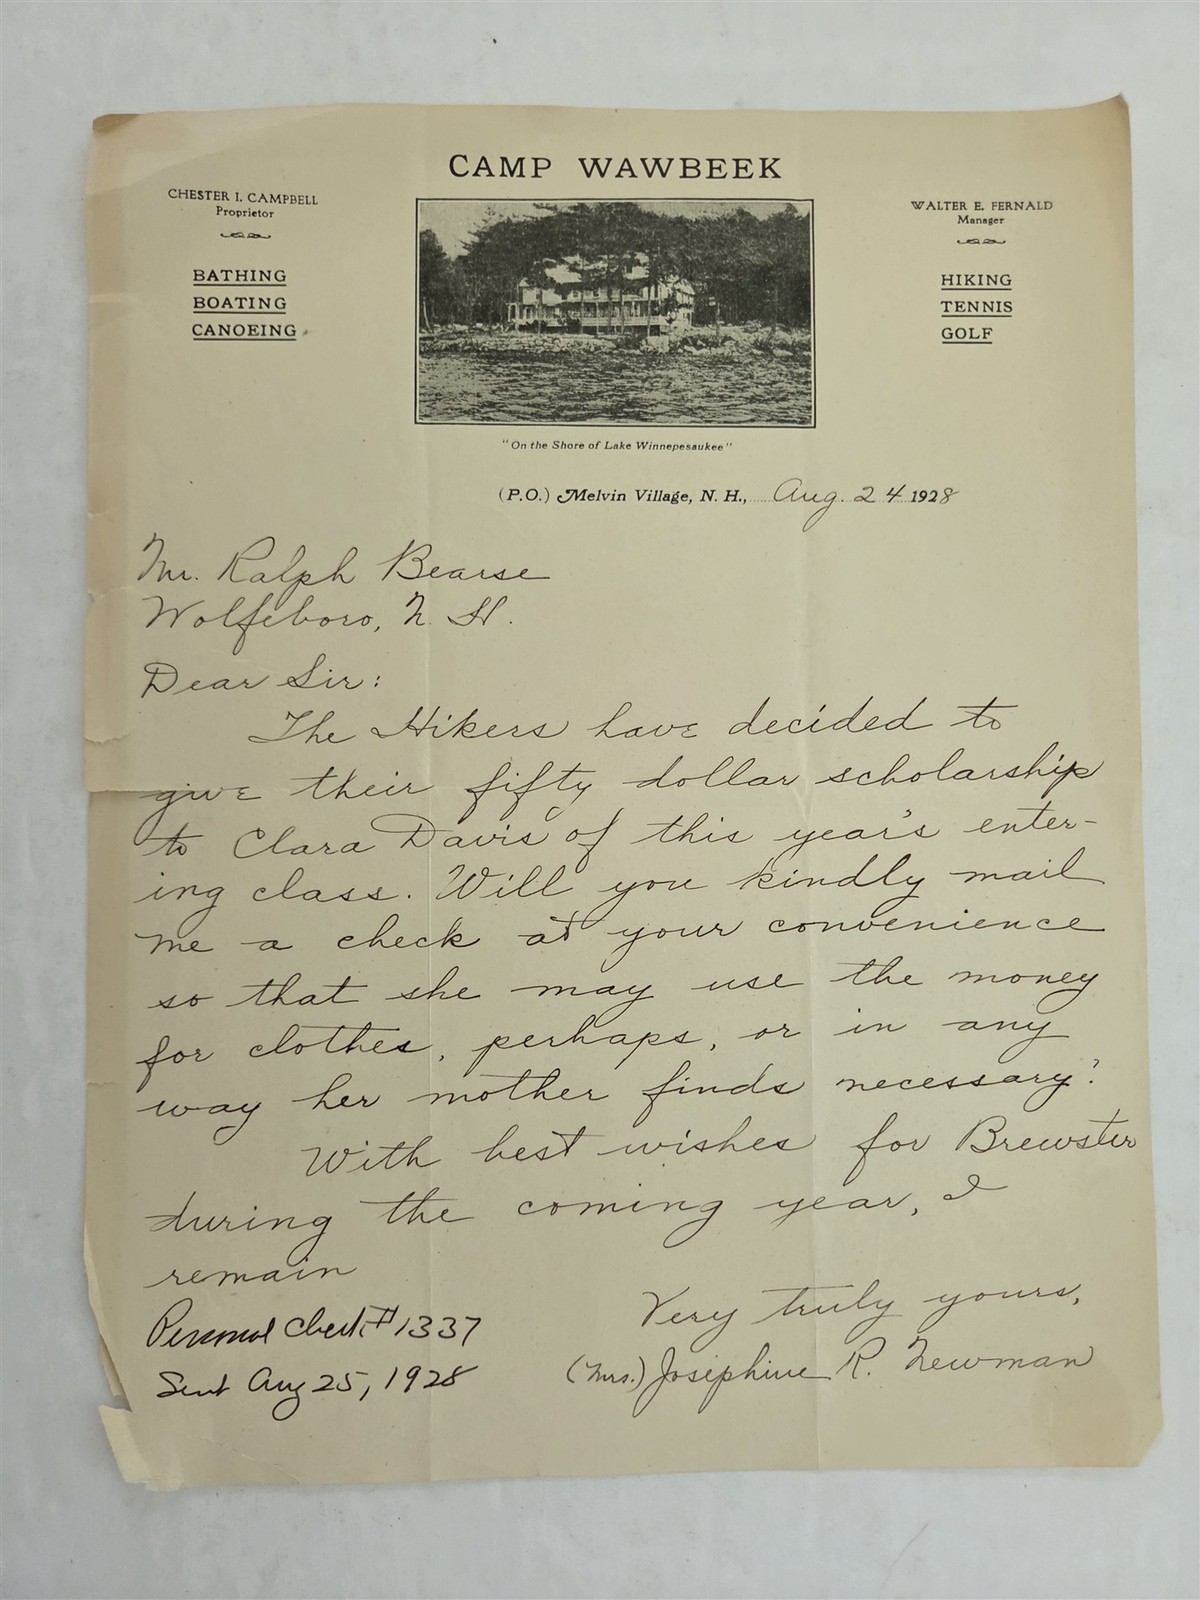 CAMP WAWBEEK
CHESTER I. CAMPBELL
Proprietor
BATHING
BOATING
CANOEING
WALTER E. FERNALD
Manager
HIKING
TENNIS
GOLF
"On the Shore of Lake Winnepesaukee"
(P.O.) Melvin Village, N. H., Aug. 24 1928
Mr. Ralph Bearse
Wolfeboro, N. H.
Dear Sir:
The Hikers have decided to
give their fifty dollar scholarship
to Clara Davis of this year's enter-
ing class. Will you kindly mail
me a check at your convenience
so that she may use the money
for clothes, perhaps, or in any
way her mother finds necessary?
With best wishes for Brewster
during the coming year, I
remain
Very truly yours,
(Mrs.) Josephine R. Newman
Personal check # 1337
Sent Aug 25, 1928